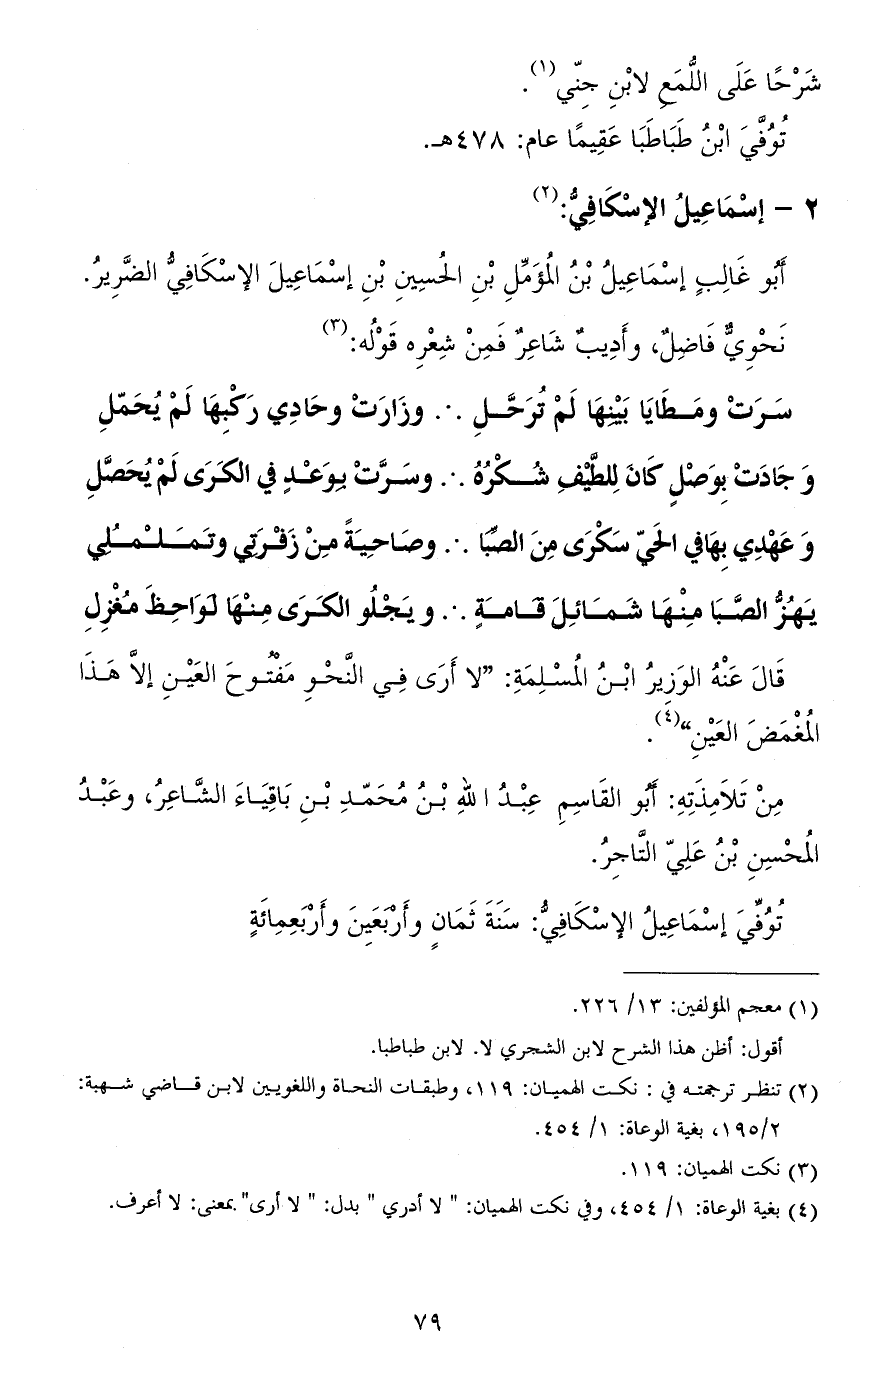 شَرْحًا عَلَى اللُّمَعِ لابْنِ جِنّي(١).
تُوُفَّيَ ابْنُ طَبَاطَبَا عَقِيمًا عام: ٤٧٨هـ.
٢ - إسْمَاعِيلُ الإسْكَافِيُّ:(٢)
أبُو غَالِبٍ إسْمَاعِيلُ بْنُ المُؤَمِّلِ بْنِ الحُسِينِ بْنِ إسْمَاعِيلَ الإسْكَافِيُّ الضَّرِيرُ.
نَحْوِيٌّ فَاضِلٌ، وأَدِيبٌ شَاعِرٌ فَمِنْ شِعْرِه قَوْلُه:(٣)
سَرَتْ ومَطَايَا بَيْنِهَا لَمْ تُرَحَّلِ ∴ وزَارَتْ وحَادِي رَكْبِهَا لَمْ يُحَمّلِ
وَجَادَتْ بِوَصْلٍ كَانَ لِلطَّيْفِ شُكْرُهُ ∴ وسَرَّتْ بِوَعْدٍ في الكَرَى لَمْ يُحَصَّلِ
وَعَهْدِي بِهَا في الحَيّ سَكْرَى مِنَ الصِّبَا ∴ وصَاحِيَةً مِنْ زَفْرَتِي وتَمَلْمُلِي
يَهُزُّ الصَّبَا مِنْهَا شَمَائِلَ قَامَةٍ ∴ ويَجْلُو الكَرَى مِنْهَا لَوَاحِظَ مُغْزِلِ
قَالَ عَنْهُ الوَزِيرُ ابْنُ المُسْلِمَةِ: ”لا أَرَى فِي النَّحْوِ مَفْتُوحَ العَيْنِ إلاَّ هَذَا
المُغْمَضَ العَيْنِ“(٤).
مِنْ تَلاَمِذَتِهِ: أبُو القَاسِمِ عِبْدُ اللهِ بْنُ مُحَمّدِ بْنِ بَاقِيَاءَ الشَّاعِرُ، وعَبْدُ
المُحْسِنِ بْنُ عَلِيّ التَّاجِرُ.
تُوُفِّيَ إسْمَاعِيلُ الإسْكَافِيُّ: سَنَةَ ثَمَانٍ وأَرْبَعَينَ وأَرْبَعِمائَةٍ
(١) معجم المؤلفين: ١٣/ ٢٢٦.
أقول: أظن هذا الشرح لابن الشجري لا. لابن طباطبا.
(٢) تنظر ترجمته في : نكت الهميان: ١١٩، وطبقات النحاة واللغويين لابن قاضي شهبة:
١٩٥/٢، بغية الوعاة: ١/ ٤٥٤.
(٣) نكت الهميان: ١١٩.
(٤) بغية الوعاة: ١/ ٤٥٤، وفي نكت الهميان: " لا أدري " بدل: " لا أرى" بمعنى: لا أعرف.
٧٩